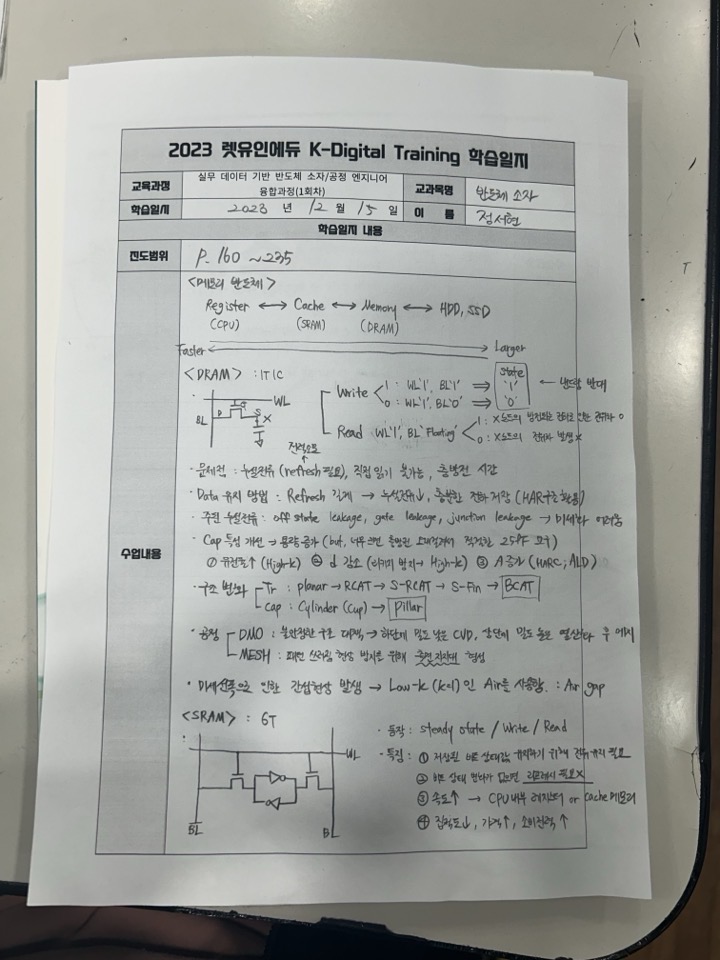 2023 렛유인에듀 K-Digital Training 학습일지
교육과정 실무 데이터 기반 반도체 소자/공정 엔지니어 융합과정(1회차) 교과목명 반도체 소자
학습일시 2023 년 12 월 15 일 이 름 정서현
학습일지 내용
진도범위 P. 160 ~235
수업내용
<메모리 반도체>
Register ↔ Cache ↔ Memory ↔ HDD, SSD
(CPU) (SRAM) (DRAM)
Faster Larger
<DRAM> : 1T1C
WL
BL
D G S X
state
Write 1 : WL'1', BL'1' ⇒ '1' ← 낸드랑 반대
0 : WL'1', BL'0' ⇒ '0'
Read WL'1', BL'Floating' 1 : X노드의 전위변화 O
0 : X노드의 전위차 발생 X
전력소모
· 문제점 : 누설전류 (refresh 필요), 직접 읽기 불가능, 충방전 시간
· Data 유지 방법 : Refresh 길게 → 누설전류↓, 충분한 전하 저장 (HAR구조 활용)
· 주된 누설전류 : off state leakage, gate leakage, junction leakage → 미세화 어려움
· Cap 특성 개선 → 용량 증가 (but, 너무 크면 충방전 오래걸려서 적절한 25fF 요구)
① 유전율↑ (High-k) ② d 감소 (터널링 방지→ High-k) ③ A 증가 (HARC, ALD)
· 구조 변화 Tr : planar → RCAT → S-RCAT → S-Fin → BCAT
Cap : Cylinder (Cup) → Pillar
· 공정 DMO : 불안정한 구조 대책, → 하단에 밀도 낮은 CVD, 상단에 밀도 높은 열산화 후 에치
MESH : 패턴 쓰러짐 현상 방지를 위해 중면 지지대 형성
· 미세선폭으로 인한 간섭현상 발생 → Low-k (k=1) 인 Air을 사용함. : Air gap
<SRAM> : 6T
WL
BL BL
· 동작 : steady state / Write / Read
· 특징 : ① 저장된 비트 상태값 유지하기 위해 전원 유지 필요
② 비트 상태 변화가 없으면 리프레시 필요 X
③ 속도↑ → CPU 내부 레지스터 or cache 메모리
④ 집적도↓, 가격↑, 소비전력↑